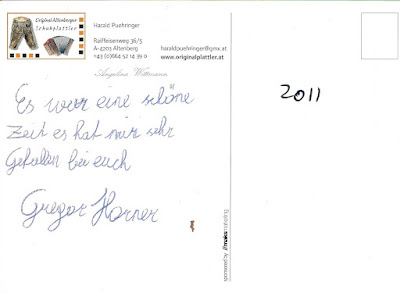 Original Altenberger
Schuhplattler
Harald Puehringer
Raiffeisenweg 36/5
A-4203 Altenberg
+43 (0)664 52 14 39 0
haraldpuehringer@gmx.at
www.originalplattler.at
Angelina Wittmann
Es war eine schöne
Zeit es hat mir sehr
Gefallen bei euch
Gregor Horner
2011